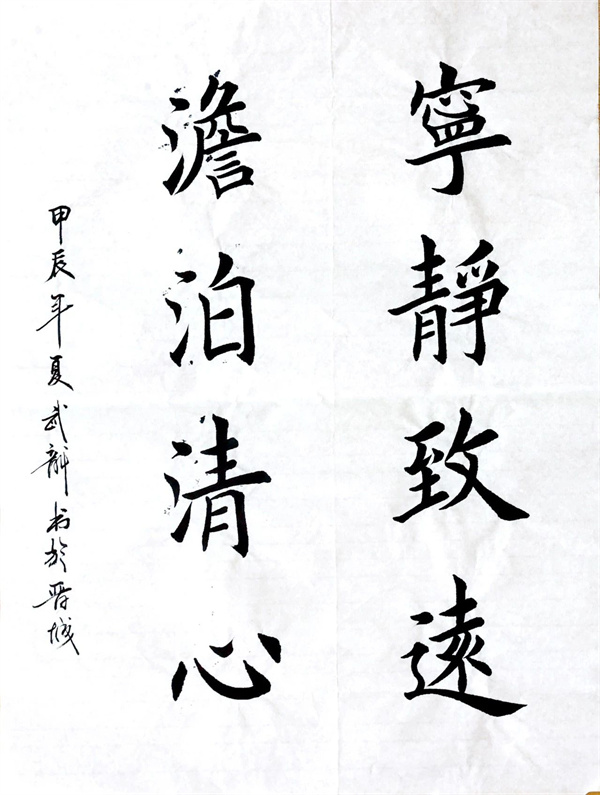 寧靜致遠
澹泊清心
甲辰年夏武書於晋城